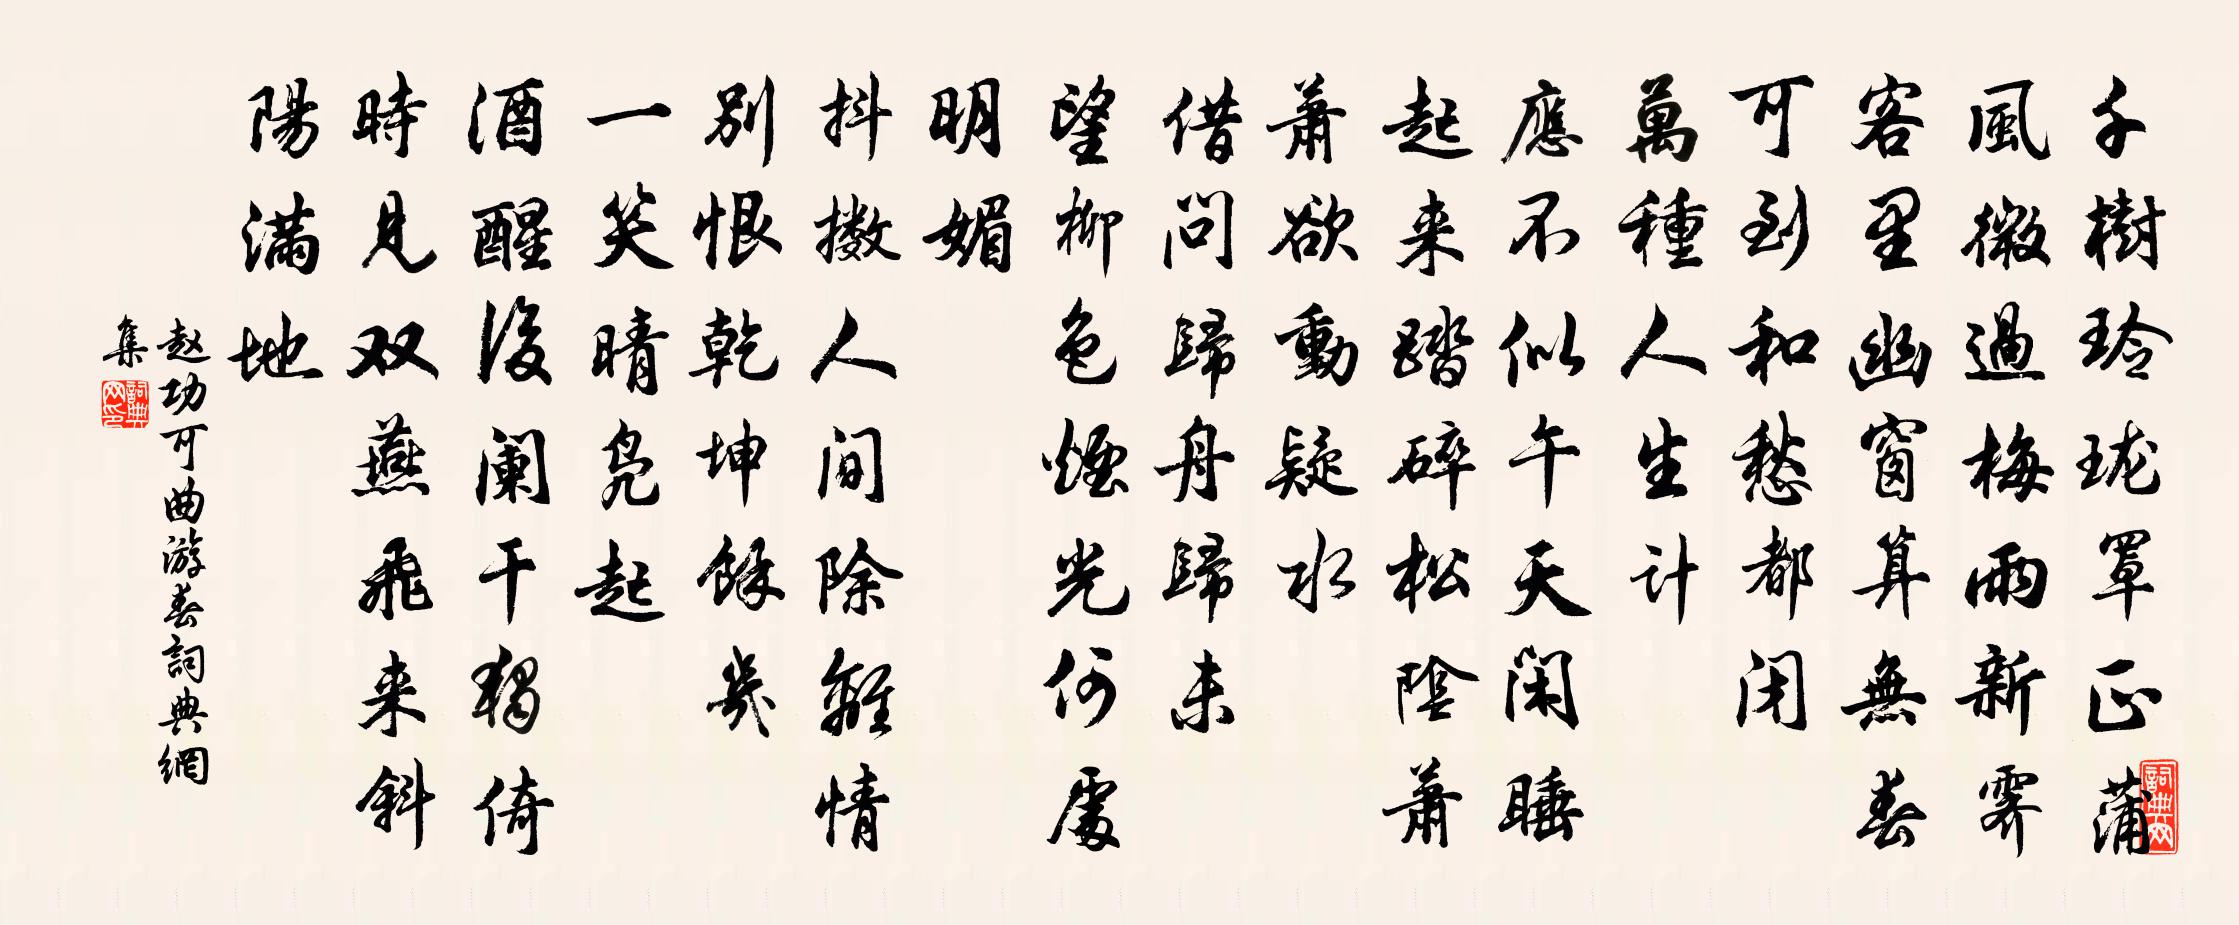 千樹玲珑罩正蒲
風微過梅雨新霽
客里幽窗算無春
可到和愁都闭
萬種人生计
應不似午天闲睡
起来踏碎松陰萧
萧欲動疑水
借問歸舟歸未
望柳色煙光何處
明媚
抖擞人间除離情
别恨乾坤餘幾
一笑晴凫起
酒醒後阑干獨倚
時見双燕飛来斜
陽满地
赵功可曲游春詞典網
集
詞典网
詞典网印